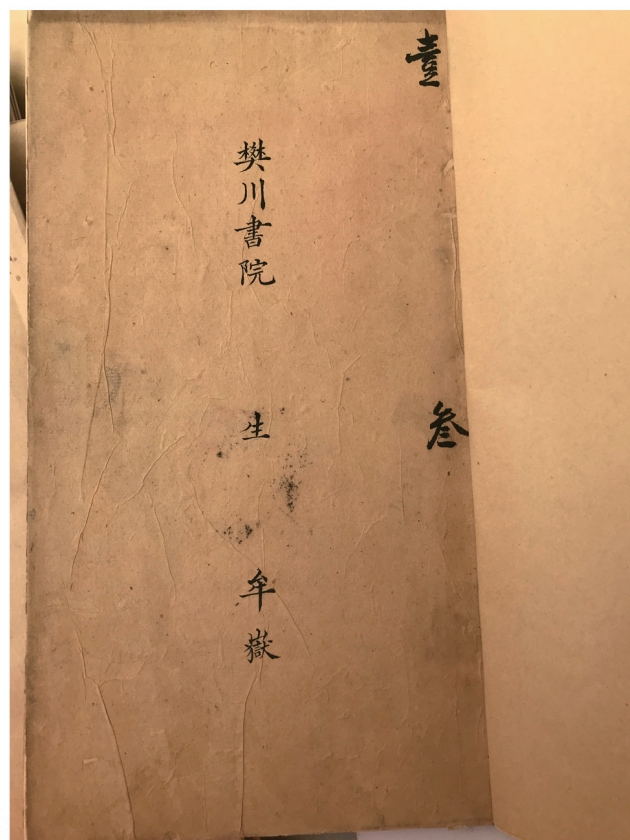 壹
叁
樊川書院 生 牟嶽